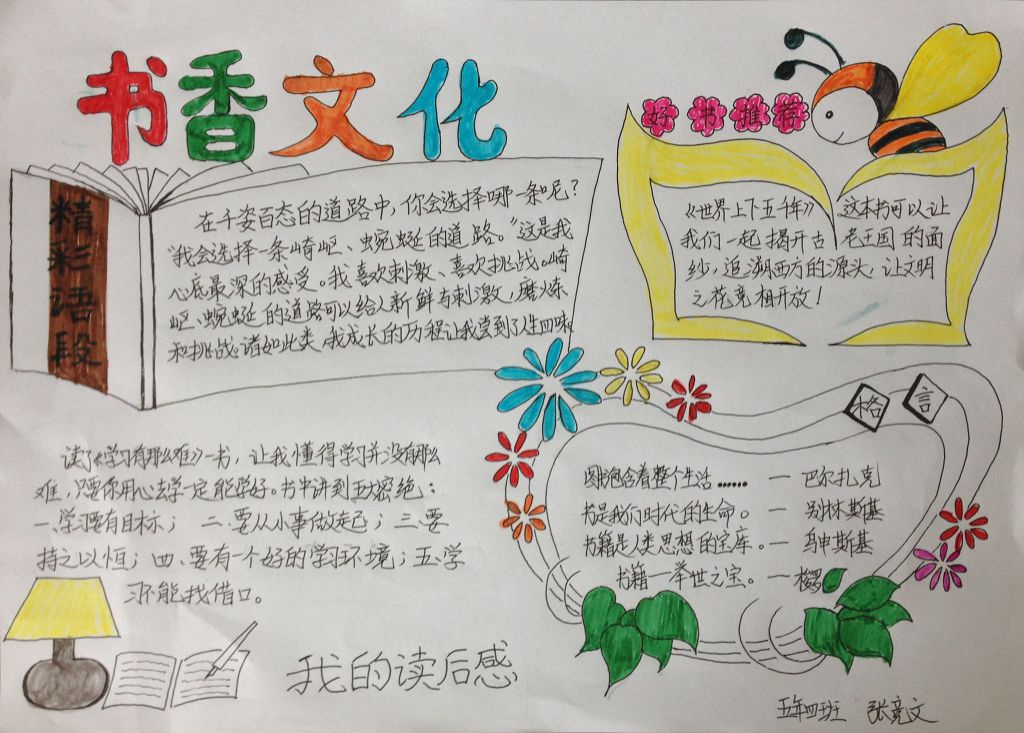 书香文化
精彩语段
在千姿百态的道路中，你会选择哪一条呢？
“我会选择一条崎岖、蜿蜒的道路。”这是我
心底最深的感受。我喜欢刺激、喜欢挑战。崎
岖、蜿蜒的道路可以给人新鲜与刺激，磨炼
和挑战。诸如此类，我成长的历程让我尝到了人生四味
好书推荐
《世界上下五千年》这本书可以让
我们一起揭开古老王国的面
纱，追溯西方的源头，让文明
之花竞相开放！
格言
图书包含着整个生活……一巴尔扎克
书是我们时代的生命。一别林斯基
书籍是人类思想的宝库。一乌申斯基
书籍一举世之宝。一梭罗
读了《学习有那么难》一书，让我懂得学习并没有那么
难，只要你用心去学一定能学好。书中讲到五大密绝：
一、学习要有目标；二、要从小事做起；三、要
持之以恒；四、要有一个好的学习环境；五、学
习不能找借口。
我的读后感
五年四班 张竞文